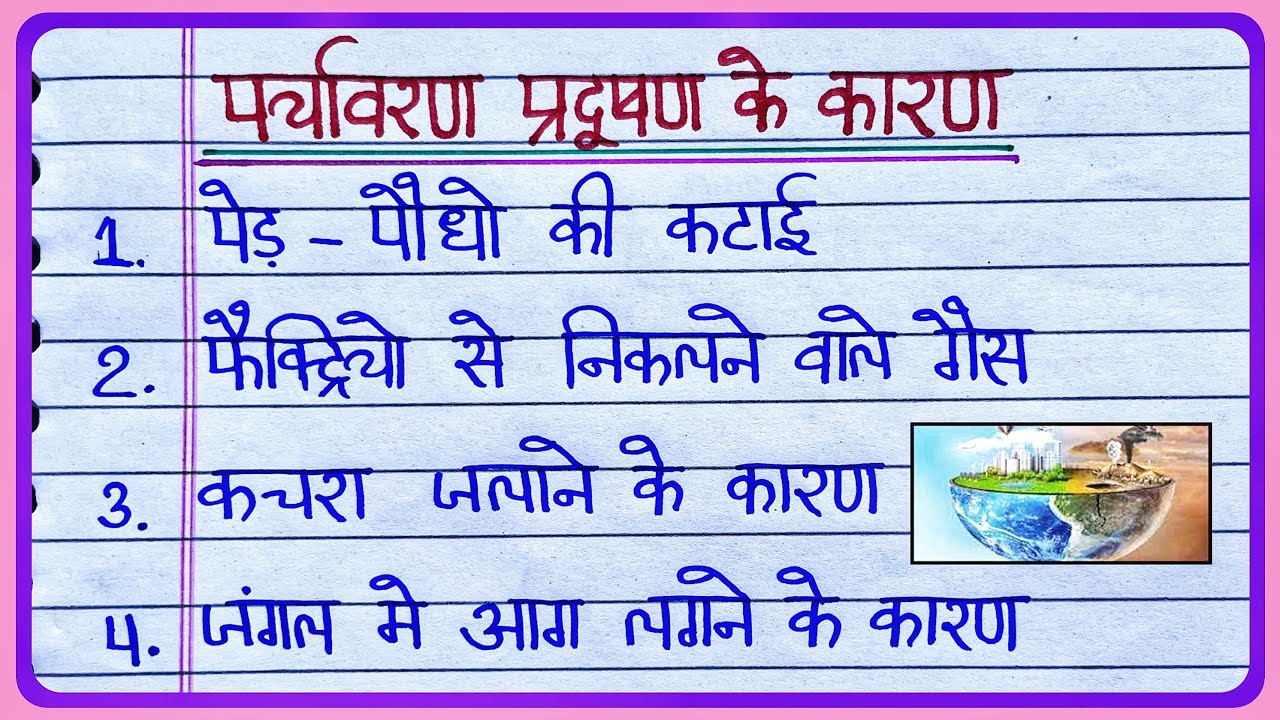 पर्यावरण प्रदूषण के कारण
1. पेड़ - पौधो की कटाई
2. फैक्ट्रियो से निकलने वाले गैस
3. कचरा जलाने के कारण
4. जंगल मे आग लगने के कारण